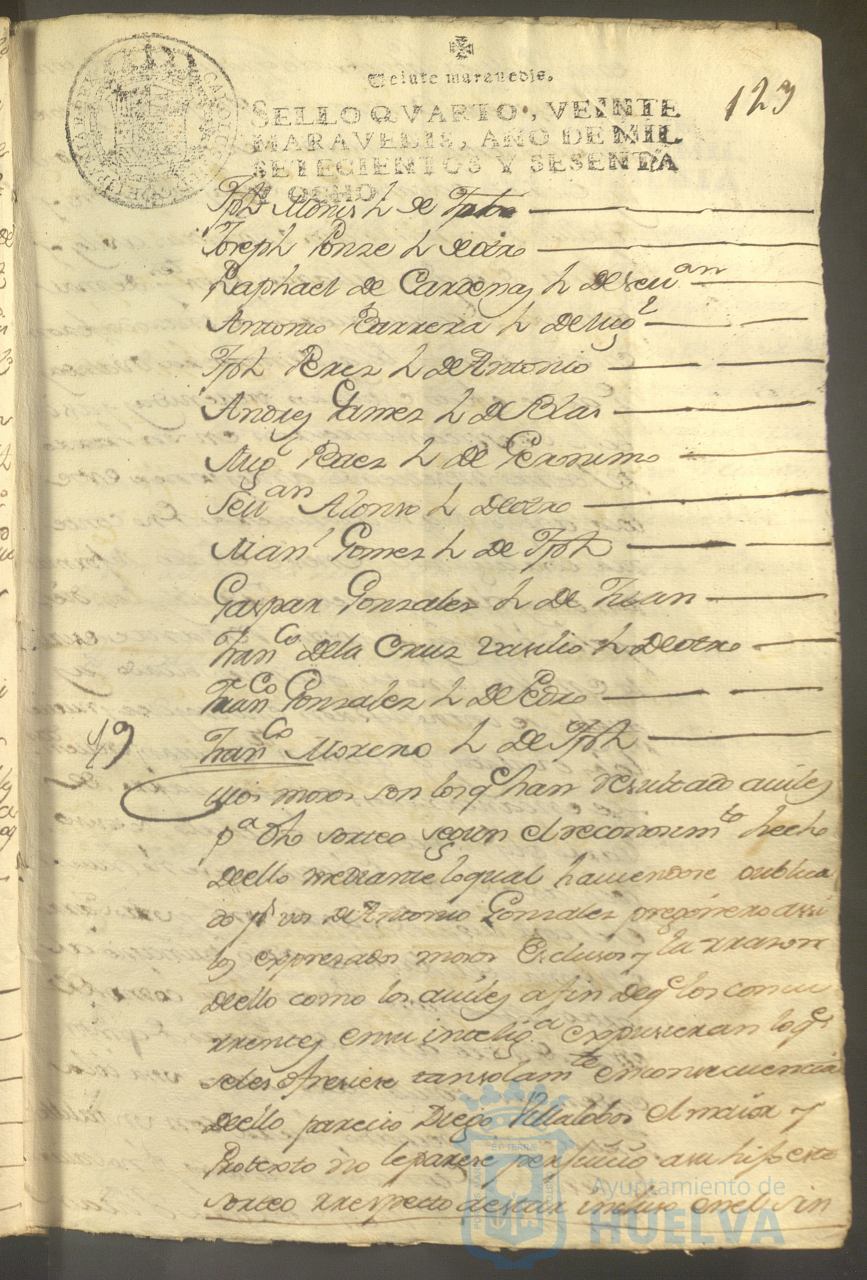 Veinte maravedis.
123
SELLO QVARTO, VEINTE
MARAVEDIS, AÑO DE MIL
SETECIENTOS Y SESENTA
Y OCHO
Jph Mones h de
Joseph Ponze h de otro
Raphael de Cardenas h de Seu.an
Antonio Barrera h de Mig.l
Jph Perez h de Antonio
Andres Gamez h de Blas
Mig.l Paez h de Geronimo
Seu.an Alonso h de otro
Man.l Gomez h de Jph
Gaspar Gonzalez h de Juan
Fran.co de la Cruz Vasilio h de otro
Fran.co Gonzalez h de Pedro
19 Fran.co Moreno h de Jph
Cuios mozos son los q.e han resultado auiles
p.a dho sorteo segun el reconosim.to hecho
de ello mediante lo qual hauiendose publica
do p.r vos de Antonio Gonzalez pregonero assi
los expresados mozos Exclusos y la rrazon
de ello como los auiles a fin de q.e los concu
rrentes en su intelig.a expusieran lo q.e
se les ofresiere tan solam.te en consecuencia
de ello parecio Diego Villalobos el maior y
Protexto no le parase perjuicio a su hijo este
sorteo rrespecto a estar incluso en el sin
Ayuntamiento de
HUELVA